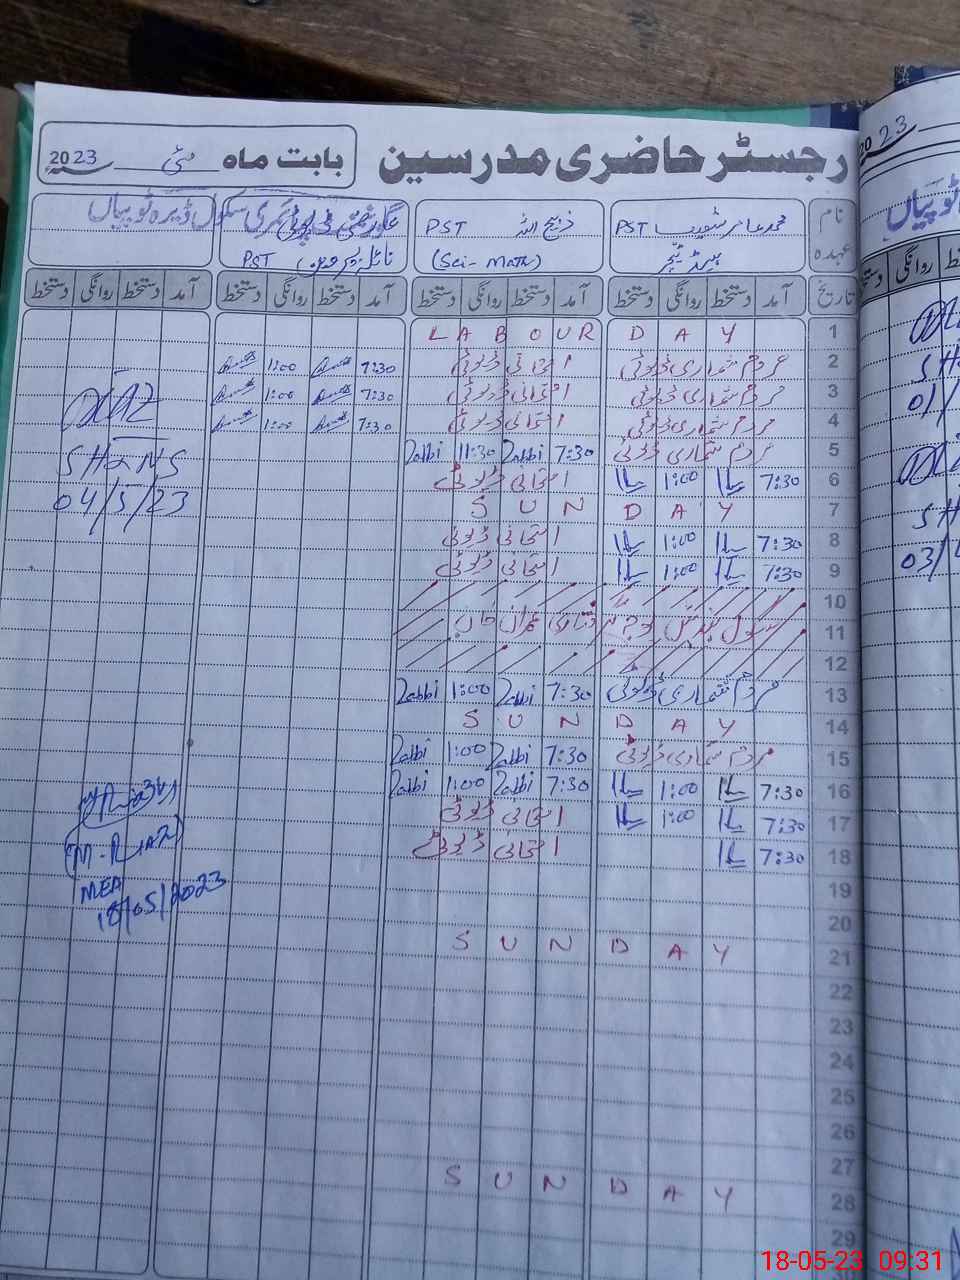 رجسٹر حاضری مدرسین
بابت ماہ مئی 2023
نام
عہدہ
محمد عامر شعیب PST
ہیڈ ٹیچر
ذبیح اللہ PST
(Sci-Math)
PST
گورنمنٹ پرائمری سکول ڈیرہ ٹوپیاں
تاریخ آمد دستخط روانگی دستخط آمد دستخط روانگی دستخط آمد دستخط روانگی دستخط آمد دستخط روانگی دستخط
1 LABOUR DAY
2 مردم شماری ڈیوٹی امتحانی ڈیوٹی 7:30 1:00
3 مردم شماری ڈیوٹی امتحانی ڈیوٹی 7:30 1:00
4 مردم شماری ڈیوٹی امتحانی ڈیوٹی 7:30 1:00
5 مردم شماری ڈیوٹی 7:30 Zabbi 11:30 Zabbi
6 7:30 1:00 امتحانی ڈیوٹی
7 SUN DAY
8 7:30 1:00 امتحانی ڈیوٹی
9 7:30 1:00 امتحانی ڈیوٹی
10
11 عمران خان
12
13 مردم شماری ڈیوٹی 7:30 Zabbi 1:00 Zabbi
14 SUN DAY
15 مردم شماری ڈیوٹی 7:30 Zabbi 1:00 Zabbi
16 7:30 1:00 7:30 Zabbi 1:00 Zabbi
17 7:30 1:00 امتحانی ڈیوٹی
18 7:30 امتحانی ڈیوٹی
19
20
21 SUN DAY
22
23
24
25
26
27
28 SUN DAY
29
04/5/23
(M-Riaz)
MEA
18/05/2023
2023
ٹوپیاں
روانگی دستخط
01/
03/
18-05-23 09:31